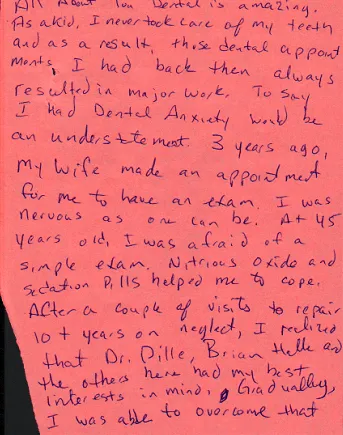 All About You Dental is amazing.
As a kid, I never took care of my teeth
and as a result, those dental appoint
ments, I had back then always
resulted in major work. To say
I had Dental Anxiety would be
an understatement. 3 years ago,
my wife made an appointment
for me to have an exam. I was
nervous as one can be. At 45
years old, I was afraid of a
simple exam. Nitrious Oxide and
sedation pills helped me to cope.
After a couple of visits to repair
10+ years on neglect, I realized
that Dr. Dille, Brian Helle and
the others here had my best
interests in mind. Gradually,
I was able to overcome that